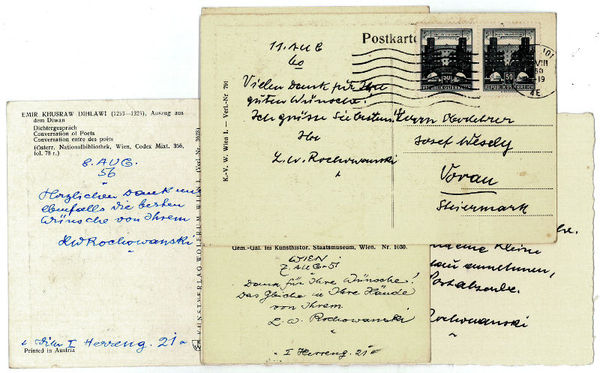 EMIR KHUSRAW DIHLAWI (1253–1325), Auszug aus
dem Diwan
Dichtergespräch
Conversation of Poets
Conversation entre des poèts
(Österr. Nationalbibliothek, Wien, Codex Mixt. 356,
fol. 78 r.)
8. AUG.
56
Herzlichen Dank und
ebenfalls die besten
Wünsche von Ihrem
LWRochowanski
Wien I Herreng. 21
Printed in Austria
Postkarte
11. AUG
60
Vielen Dank für Ihre
guten Wünsche.
Ich grüsse Sie bestens
Ihr
L. W. Rochowanski
K.-V. W. Wien I. – Verl.-Nr. 791
Herrn Oberlehrer
Josef Wesely
Vorau
Steiermark
50
VIII
60
-19
Gem.-Gal. bis Kunsthistor. Staatsmuseum, Wien. Nr. 1030.
WIEN
7. AUG-51
Dank für Ihre Wünsche!
Das Gleiche in Ihre Hände
von Ihrem
L. W. Rochowanski
I Herreng. 21
eine kleine
anzunehmen,
Rochowanski